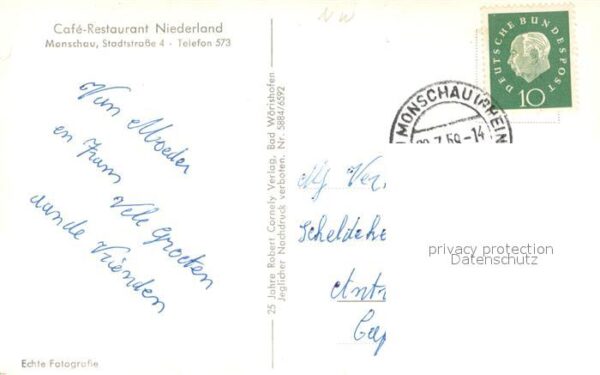 Café-Restaurant Niederland
Monschau, Stadtstraße 4 - Telefon 573
Van Moeder
en Frans Vele Groeten
aan de Vrienden
Echte Fotografie
25 Jahre Robert Cornely Verlag, Bad Wörishofen
Jeglicher Nachdruck verboten. Nr. 5884/6592
DEUTSCHE BUNDESPOST
10
MONSCHAU (RHEIN
.7.59-14
Ver
Schelde
privacy protection
Datenschutz